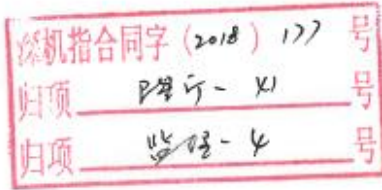 深机指合同字(2018)177号
归项 隧行-X1 号
归项 监理-4 号